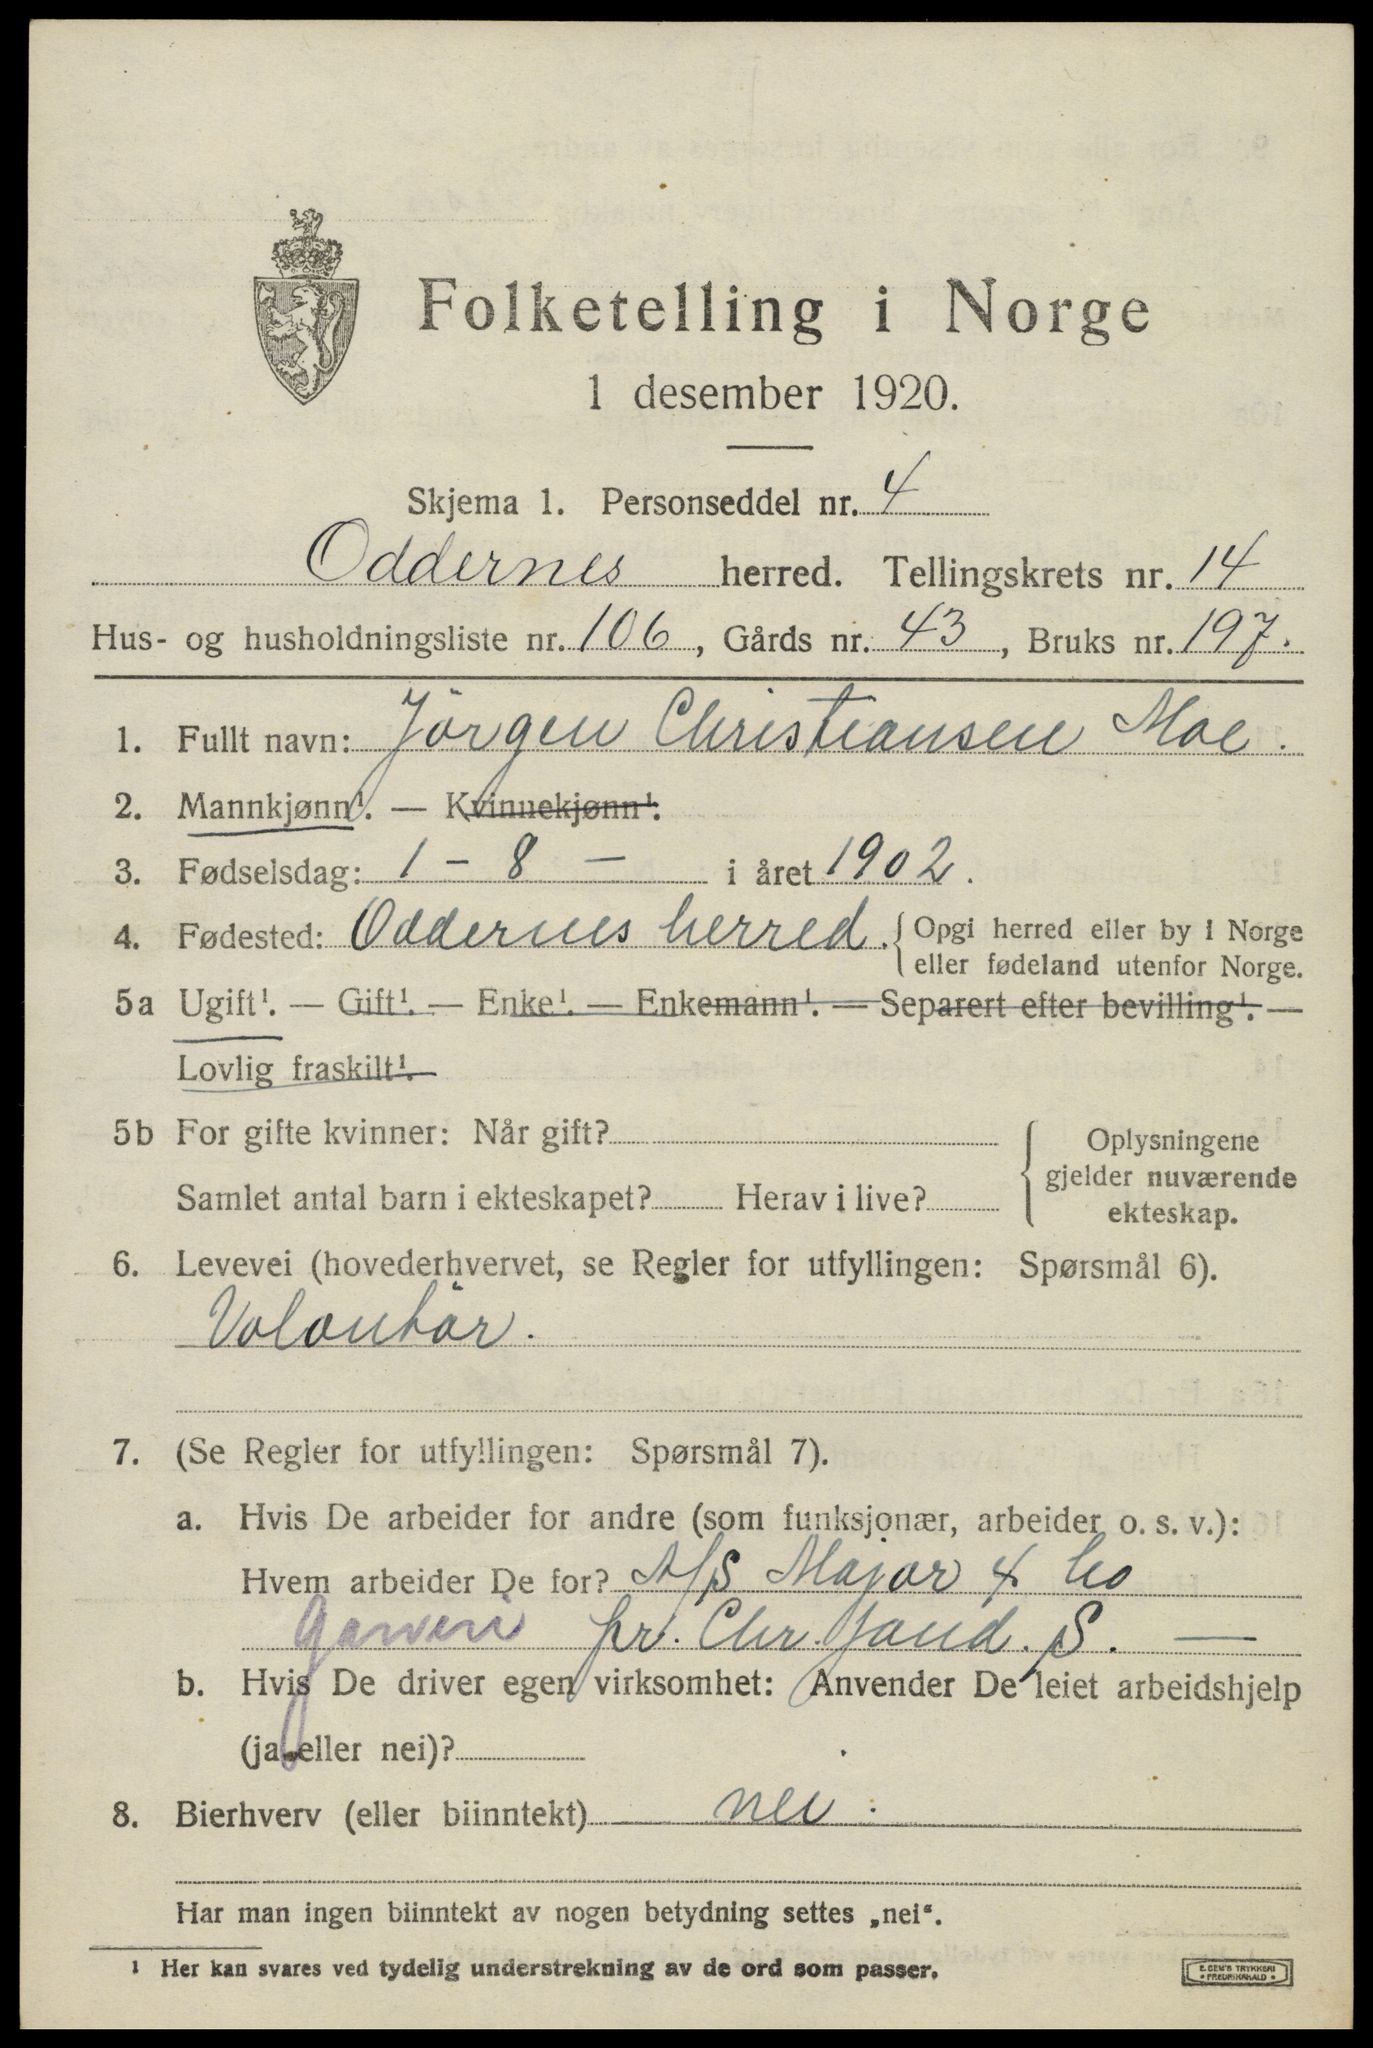 Folketelling i Norge
1 desember 1920.
Skjema 1. Personseddel nr. 4
Oddernes herred. Tellingskrets nr. 14
Hus- og husholdningsliste nr. 106, Gårds nr. 43, Bruks nr. 197.
1. Fullt navn: Jörgen Christiansen Moe.
2. Mannkjønn¹. — Kvinnekjønn¹.
3. Fødselsdag: 1 - 8 - i året 1902.
4. Fødested: Oddernes herred. { Opgi herred eller by i Norge
eller fødeland utenfor Norge.
5a Ugift¹. — Gift¹. — Enke¹. — Enkemann¹. — Separert efter bevilling¹. —
Lovlig fraskilt¹.
5b For gifte kvinner: Når gift?
Samlet antal barn i ekteskapet? Herav i live?
Oplysningene
gjelder nuværende
ekteskap.
6. Levevei (hovederhvervet, se Regler for utfyllingen: Spørsmål 6).
Volontör.
7. (Se Regler for utfyllingen: Spørsmål 7).
a. Hvis De arbeider for andre (som funksjonær, arbeider o. s. v.):
Hvem arbeider De for? A/S Major & Co
Garveri pr. Chr.sand. S. —
b. Hvis De driver egen virksomhet: Anvender De leiet arbeidshjelp
(ja eller nei)?
8. Bierhverv (eller biinntekt) nei.
Har man ingen biinntekt av nogen betydning settes „nei“.
¹ Her kan svares ved tydelig understrekning av de ord som passer.
E. SEM'S TRYKKERI
FREDRIKSHALD